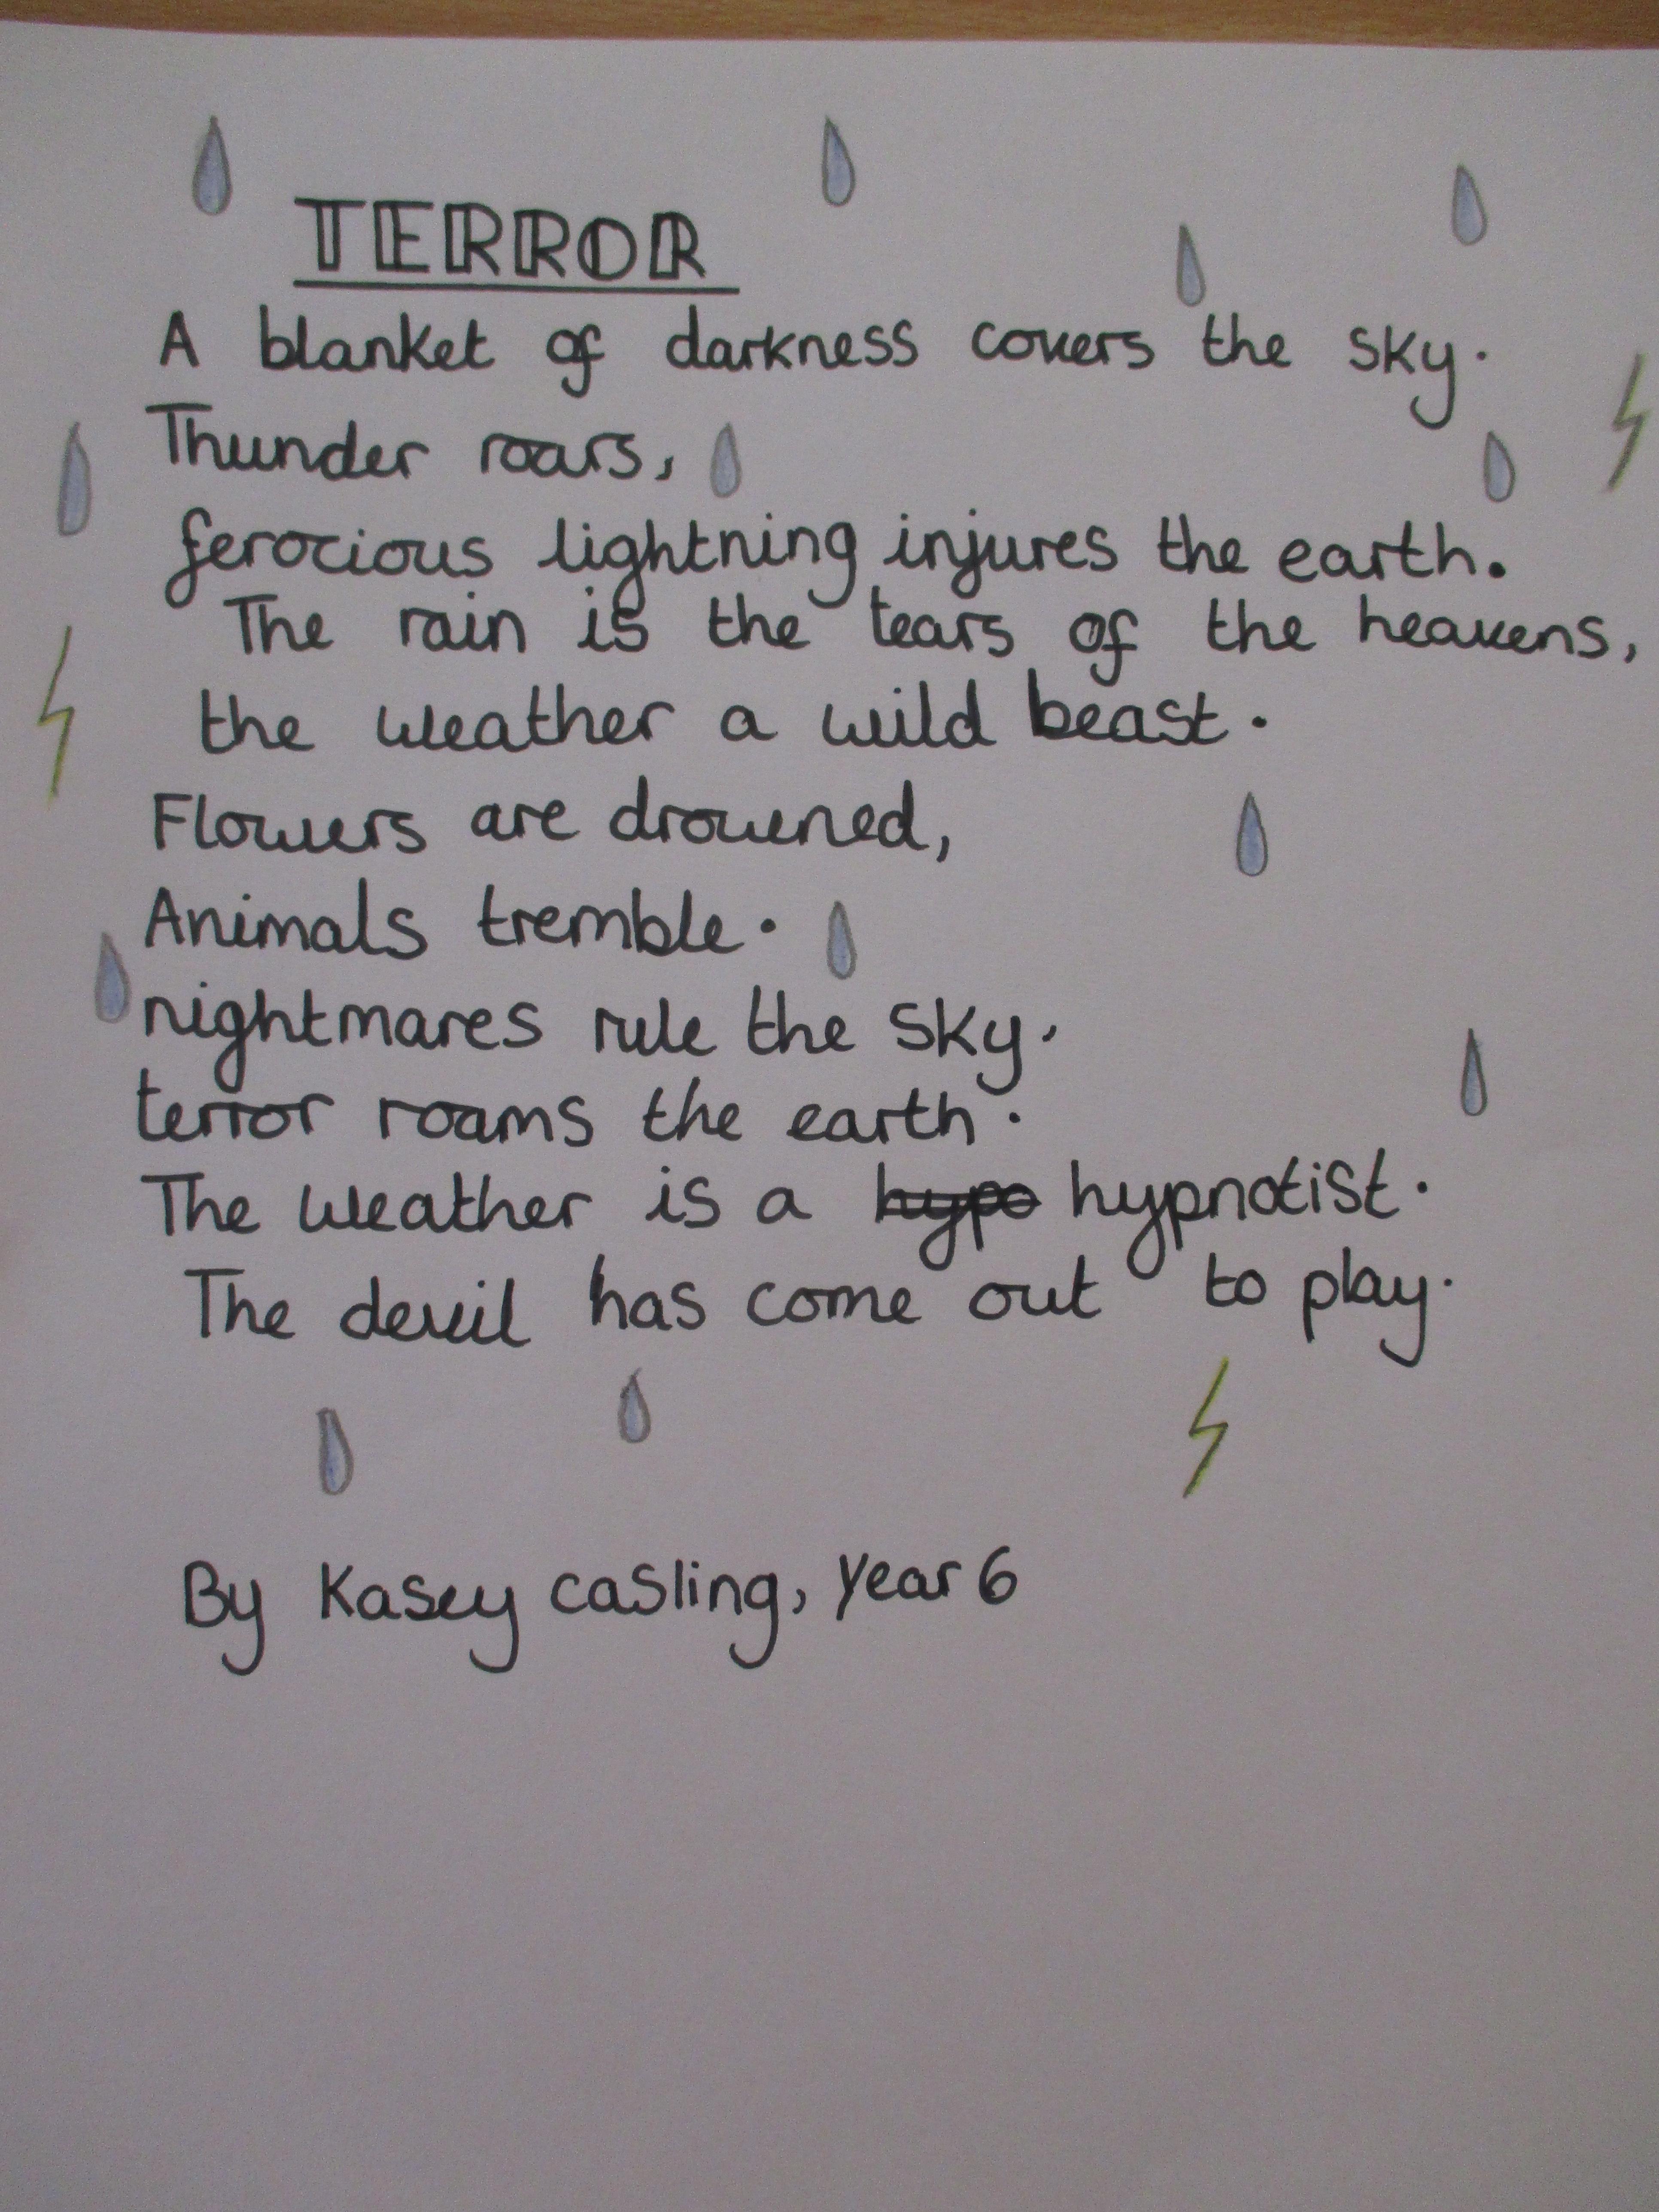 TERROR
A blanket of darkness covers the sky.
Thunder roars,
ferocious lightning injures the earth.
The rain is the tears of the heavens,
the weather a wild beast.
Flowers are drowned,
Animals tremble.
nightmares rule the sky,
terror roams the earth.
The weather is a hypo hypnotist.
The devil has come out to play.
By Kasey casling, Year 6